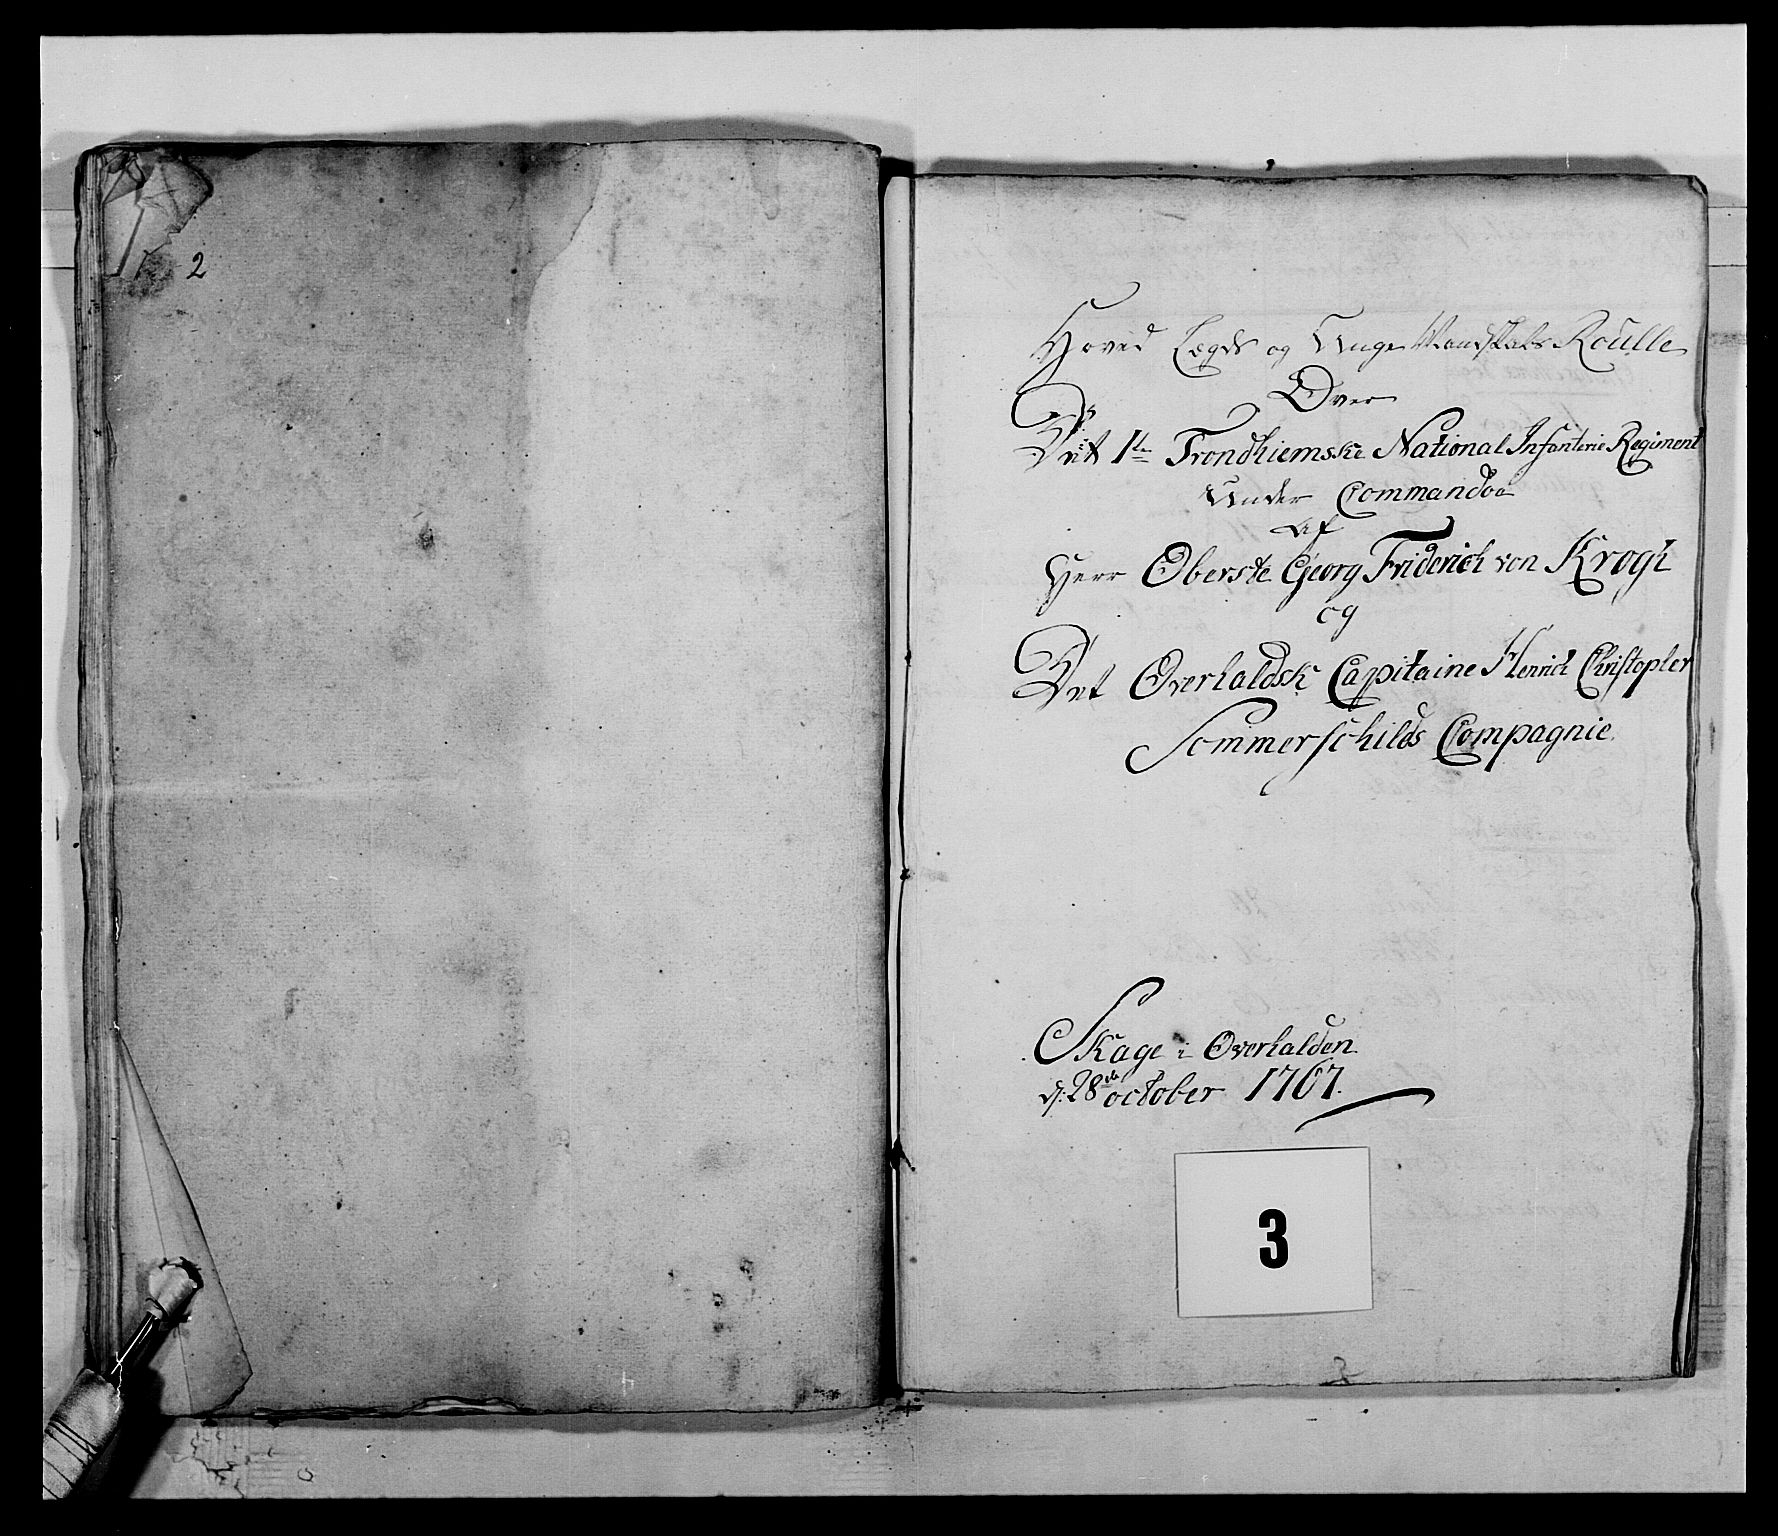 2
Hoved Lægds og Unge Mandskabs Roulle
Over
Det 1te Trondhiemske National Infanterie Regiment
Under Commandoe
af
Herr Oberste Georg Friderich von Krogh
og
Det Overhaldsk Capitaine Henrich Christopher
Sommerschilds Compagnie
Skage i Overhalden
d: 28de october 1767.
3